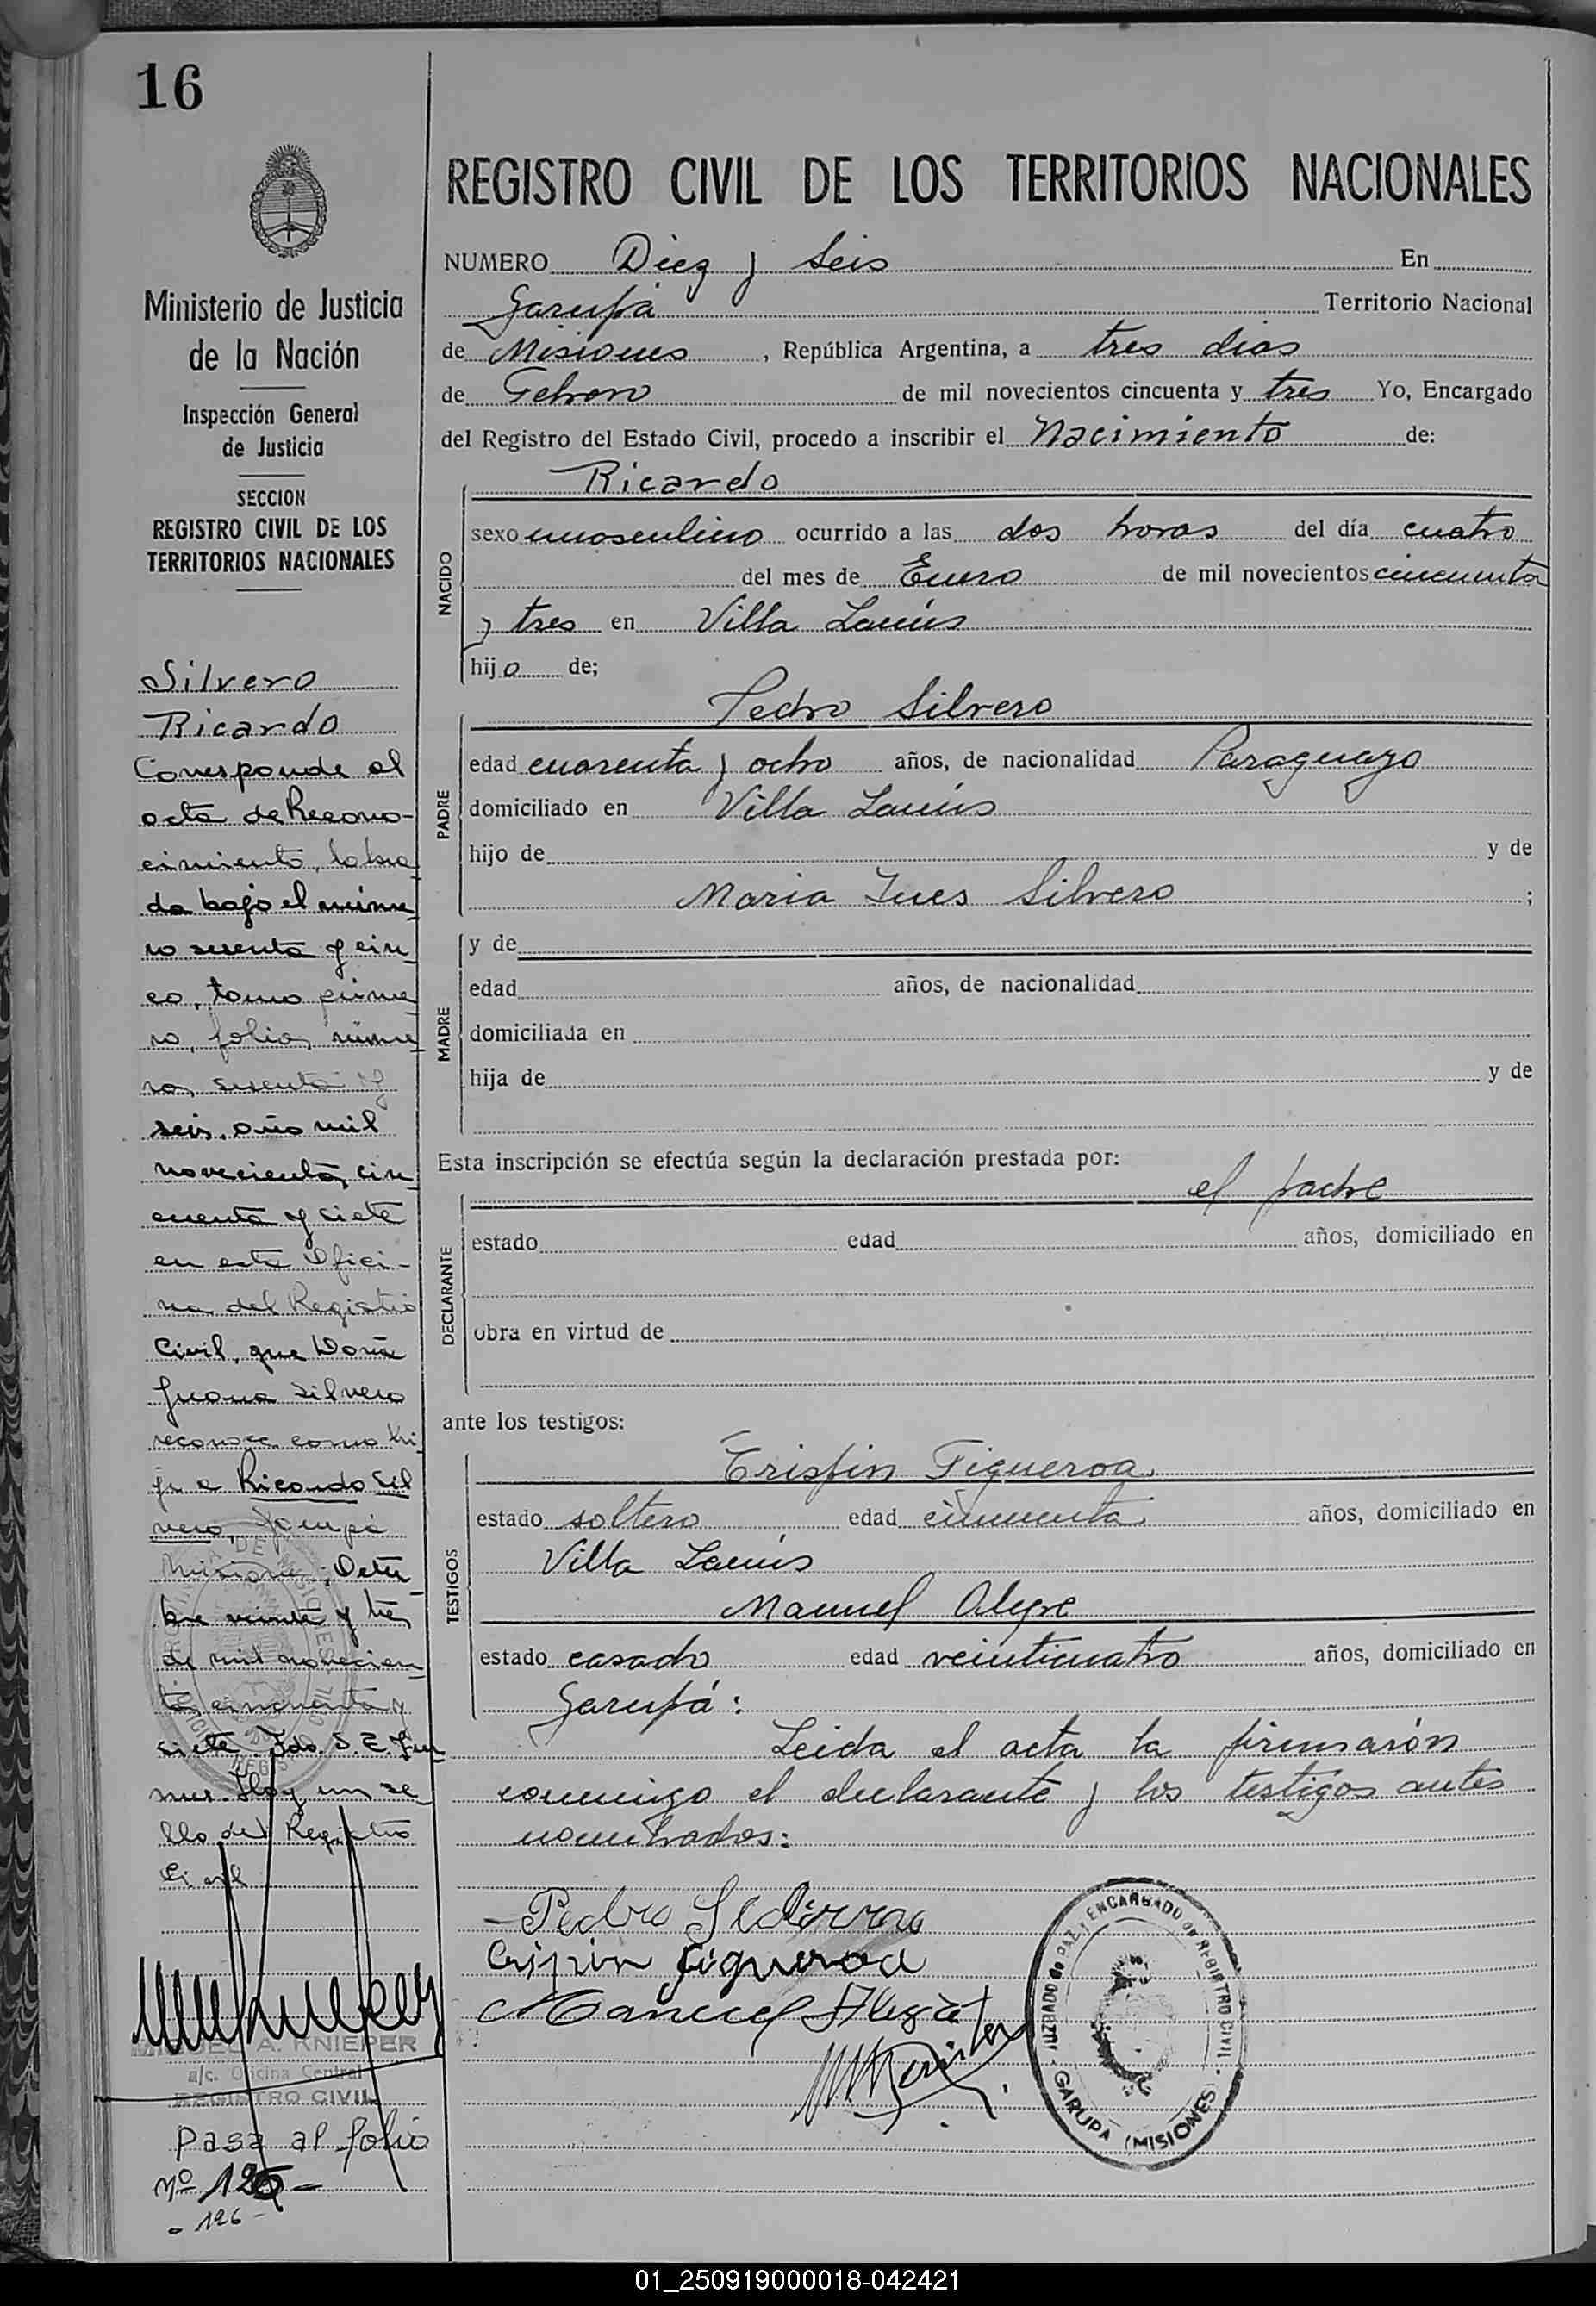 16
Ministerio de Justicia
de la Nación
Inspección General
de Justicia
SECCION
REGISTRO CIVIL DE LOS
TERRITORIOS NACIONALES
Silvero
Ricardo
Corresponde al
acta de Recono-
cimiento, labra
da bajo el núme
ro sesenta y cin
co, tomo prime
ro, folio, núme
ro, sesenta y
seis, año mil
novecientos cin
cuenta y siete
en esta Ofici-
na del Registro
Civil, que Doña
Juana Silvero
reconoce como hi
jo a Ricardo Sil
vero, Garupá
Misiones, Octu
bre veinte y tres
de mil novecien
tos cincuenta y
siete. Fdo. S. E.
Hay un se
llo del Registro
Civil
MIGUEL A. KNIEPER
a/c. Oficina Central
REGISTRO CIVIL
Pasa al folio
Nº 125-
- 126 -
REGISTRO CIVIL DE LOS TERRITORIOS NACIONALES
NUMERO Diez y Seis En
Garupá Territorio Nacional
de Misiones, República Argentina, a tres dias
de Febrero de mil novecientos cincuenta y tres Yo, Encargado
del Registro del Estado Civil, procedo a inscribir el Nacimiento de:
NACIDO
Ricardo
sexo masculino ocurrido a las dos horas del día cuatro
del mes de Enero de mil novecientos cincuenta
y tres en Villa Lanús
hijo de;
PADRE
Pedro Silvero
edad cuarenta y ocho años, de nacionalidad Paraguayo
domiciliado en Villa Lanús
hijo de y de
Maria Ines Silvero ;
MADRE
y de
edad años, de nacionalidad
domiciliada en
hija de y de
Esta inscripción se efectúa según la declaración prestada por:
DECLARANTE
el padre
estado edad años, domiciliado en
obra en virtud de
ante los testigos:
TESTIGOS
Crispin Figueroa
estado soltero edad cincuenta años, domiciliado en
Villa Lanús
Manuel Alegre
estado casado edad veinticuatro años, domiciliado en
Garupá:
Leida el acta la firmarón
conmigo el declarante y los testigos antes
nombrados:
Pedro
Crispin Figueroa
Manuel
JUZGADO de PAZ y ENCARGADO de REGISTRO CIVIL
GARUPA (MISIONES)
01_250919000018-042421